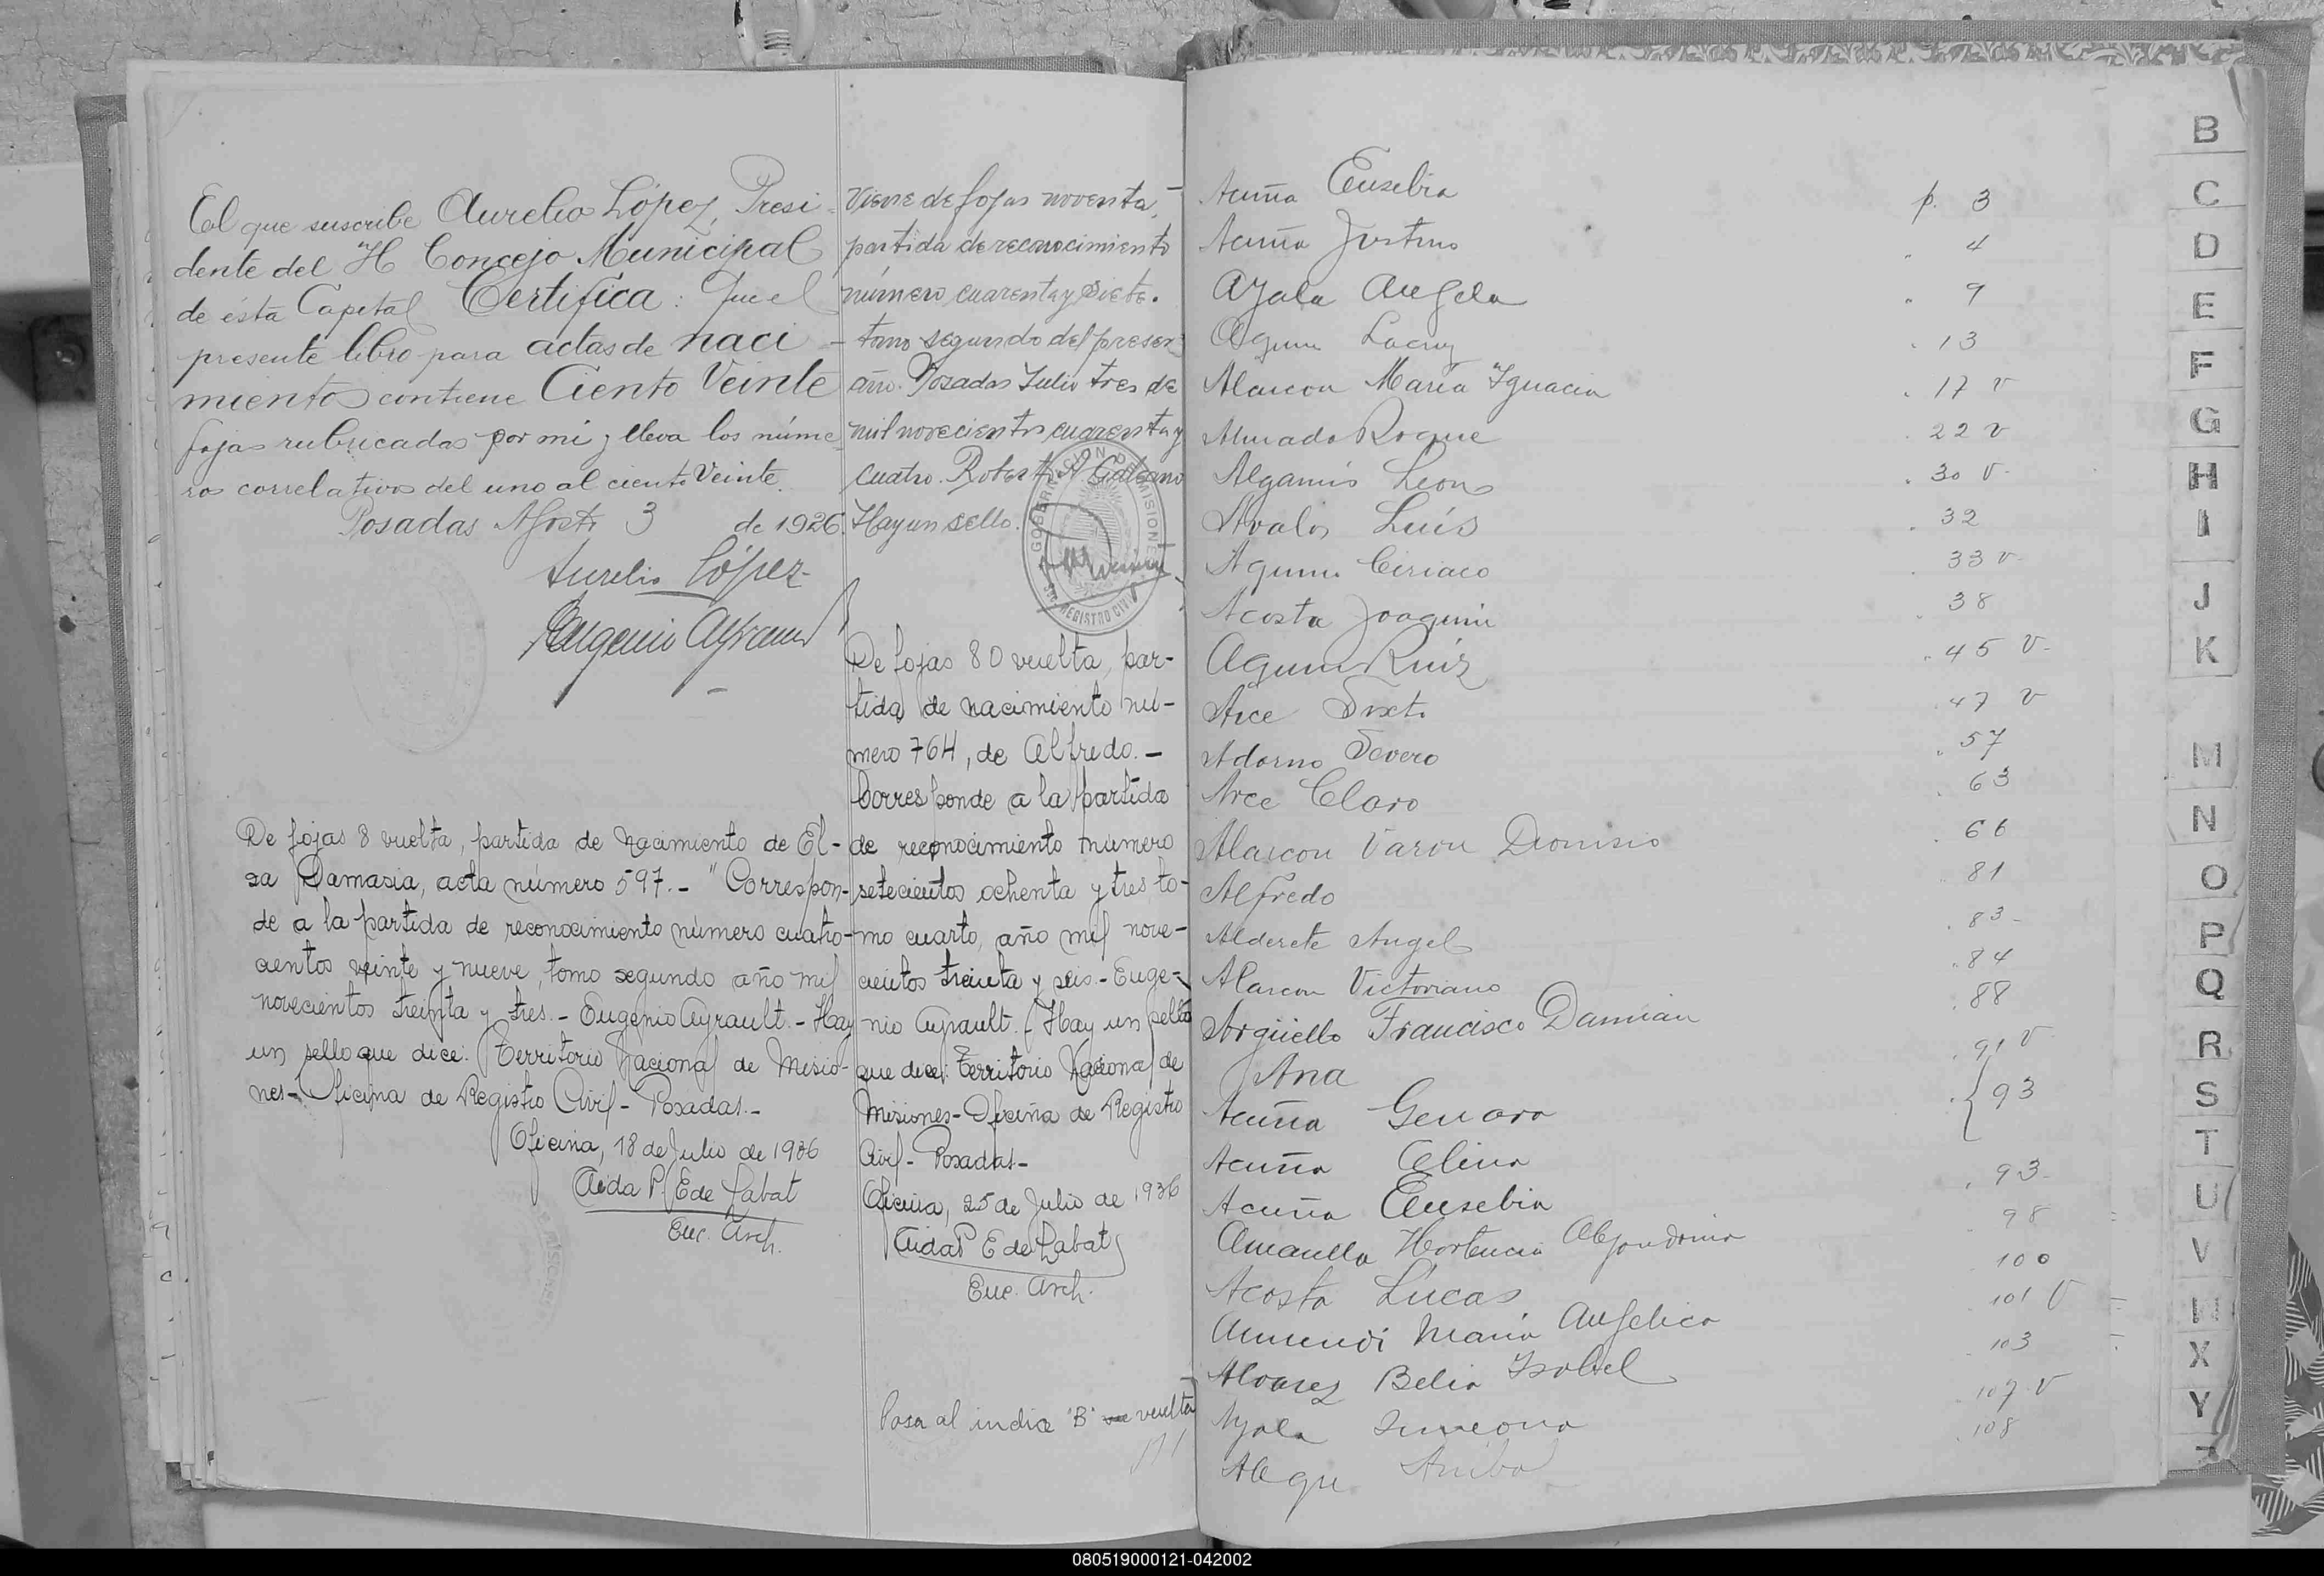 El que suscribe Aurelio López, Presi-
dente del H Concejo Municipal
de ésta Capital Certifica: Que el
presente libro para actas de naci-
mientos contiene Ciento Veinte
fojas rubricadas por mí y lleva los núme-
ros correlativos del uno al ciento Veinte.
Posadas Agosto 3 de 1926.
Aurelio López
Eugenio Ayrault
De fojas 8 vuelta, partida de nacimiento de El-
sa Damasia, acta número 597.- "Correspon-
de a la partida de reconocimiento número cuatro-
cientos veinte y nueve, tomo segundo año mil
novecientos treinta y tres.- Eugenio Ayrault.- Hay
un sello que dice: Territorio Nacional de Misio-
nes- Oficina de Registro Civil- Posadas.-
Oficina, 18 de Julio de 1936
Aida P. E de Labat
Enc. Arch.
Viene de fojas noventa,
partida de reconocimiento
número cuarenta y siete.
tomo segundo del presen
año. Posadas Julio tres de
mil novecientos cuarenta y
cuatro. Roberto A Galeano
Hay un sello.
GOBERNACION DE MISIONES
REGISTRO CIVIL
De fojas 80 vuelta, par-
tida de nacimiento nú-
mero 764, de Alfredo.-
Corresponde a la partida
de reconocimiento número
setecientos ochenta y tres to-
mo cuarto, año mil nove-
cientos treinta y seis.- Euge-
nio Ayrault.- Hay un sello
que dice: Territorio Nacional de
Misiones- Oficina de Registro
Civil- Posadas-
Oficina, 25 de Julio de 1936
Aida P E de Labat
Enc. Arch.
Pasa al indice "B" vuelta
Acuña Eusebia p. 3
Acuña Justino " 4
Ayala Angela " 9
Aguirre " 13
Alarcon María Ignacia " 17 v
Alvarado Roque " 22 v
León " 30 v
Avalos Luís " 32
Aguirre Ciriaco " 33 v
Acosta Joaquin " 38
Aguirre Ruiz " 45 v
Arce Sixto " 47 v
Adorno Severo " 57
Arce Claro " 63
Alarcon Varon Dionisio " 66
Alfredo " 81
Alderete Angel " 83
Alarcon Victoriano " 84
Argüello Francisco Damián " 88
Ana " 91 v
Acuña Genara " 93
Acuña Celina
Acuña Eusebia " 93
Amarilla Hortencia Alejandrina 98
Acosta Lucas 100
María Angelica 101 v
Alvarez Belia Isabel 103
Ayala Simeona 107 v
Alegre 108
B
C
D
E
F
G
H
I
J
K
M
N
O
P
Q
R
S
T
U
V
W
X
Y
080519000121-042002